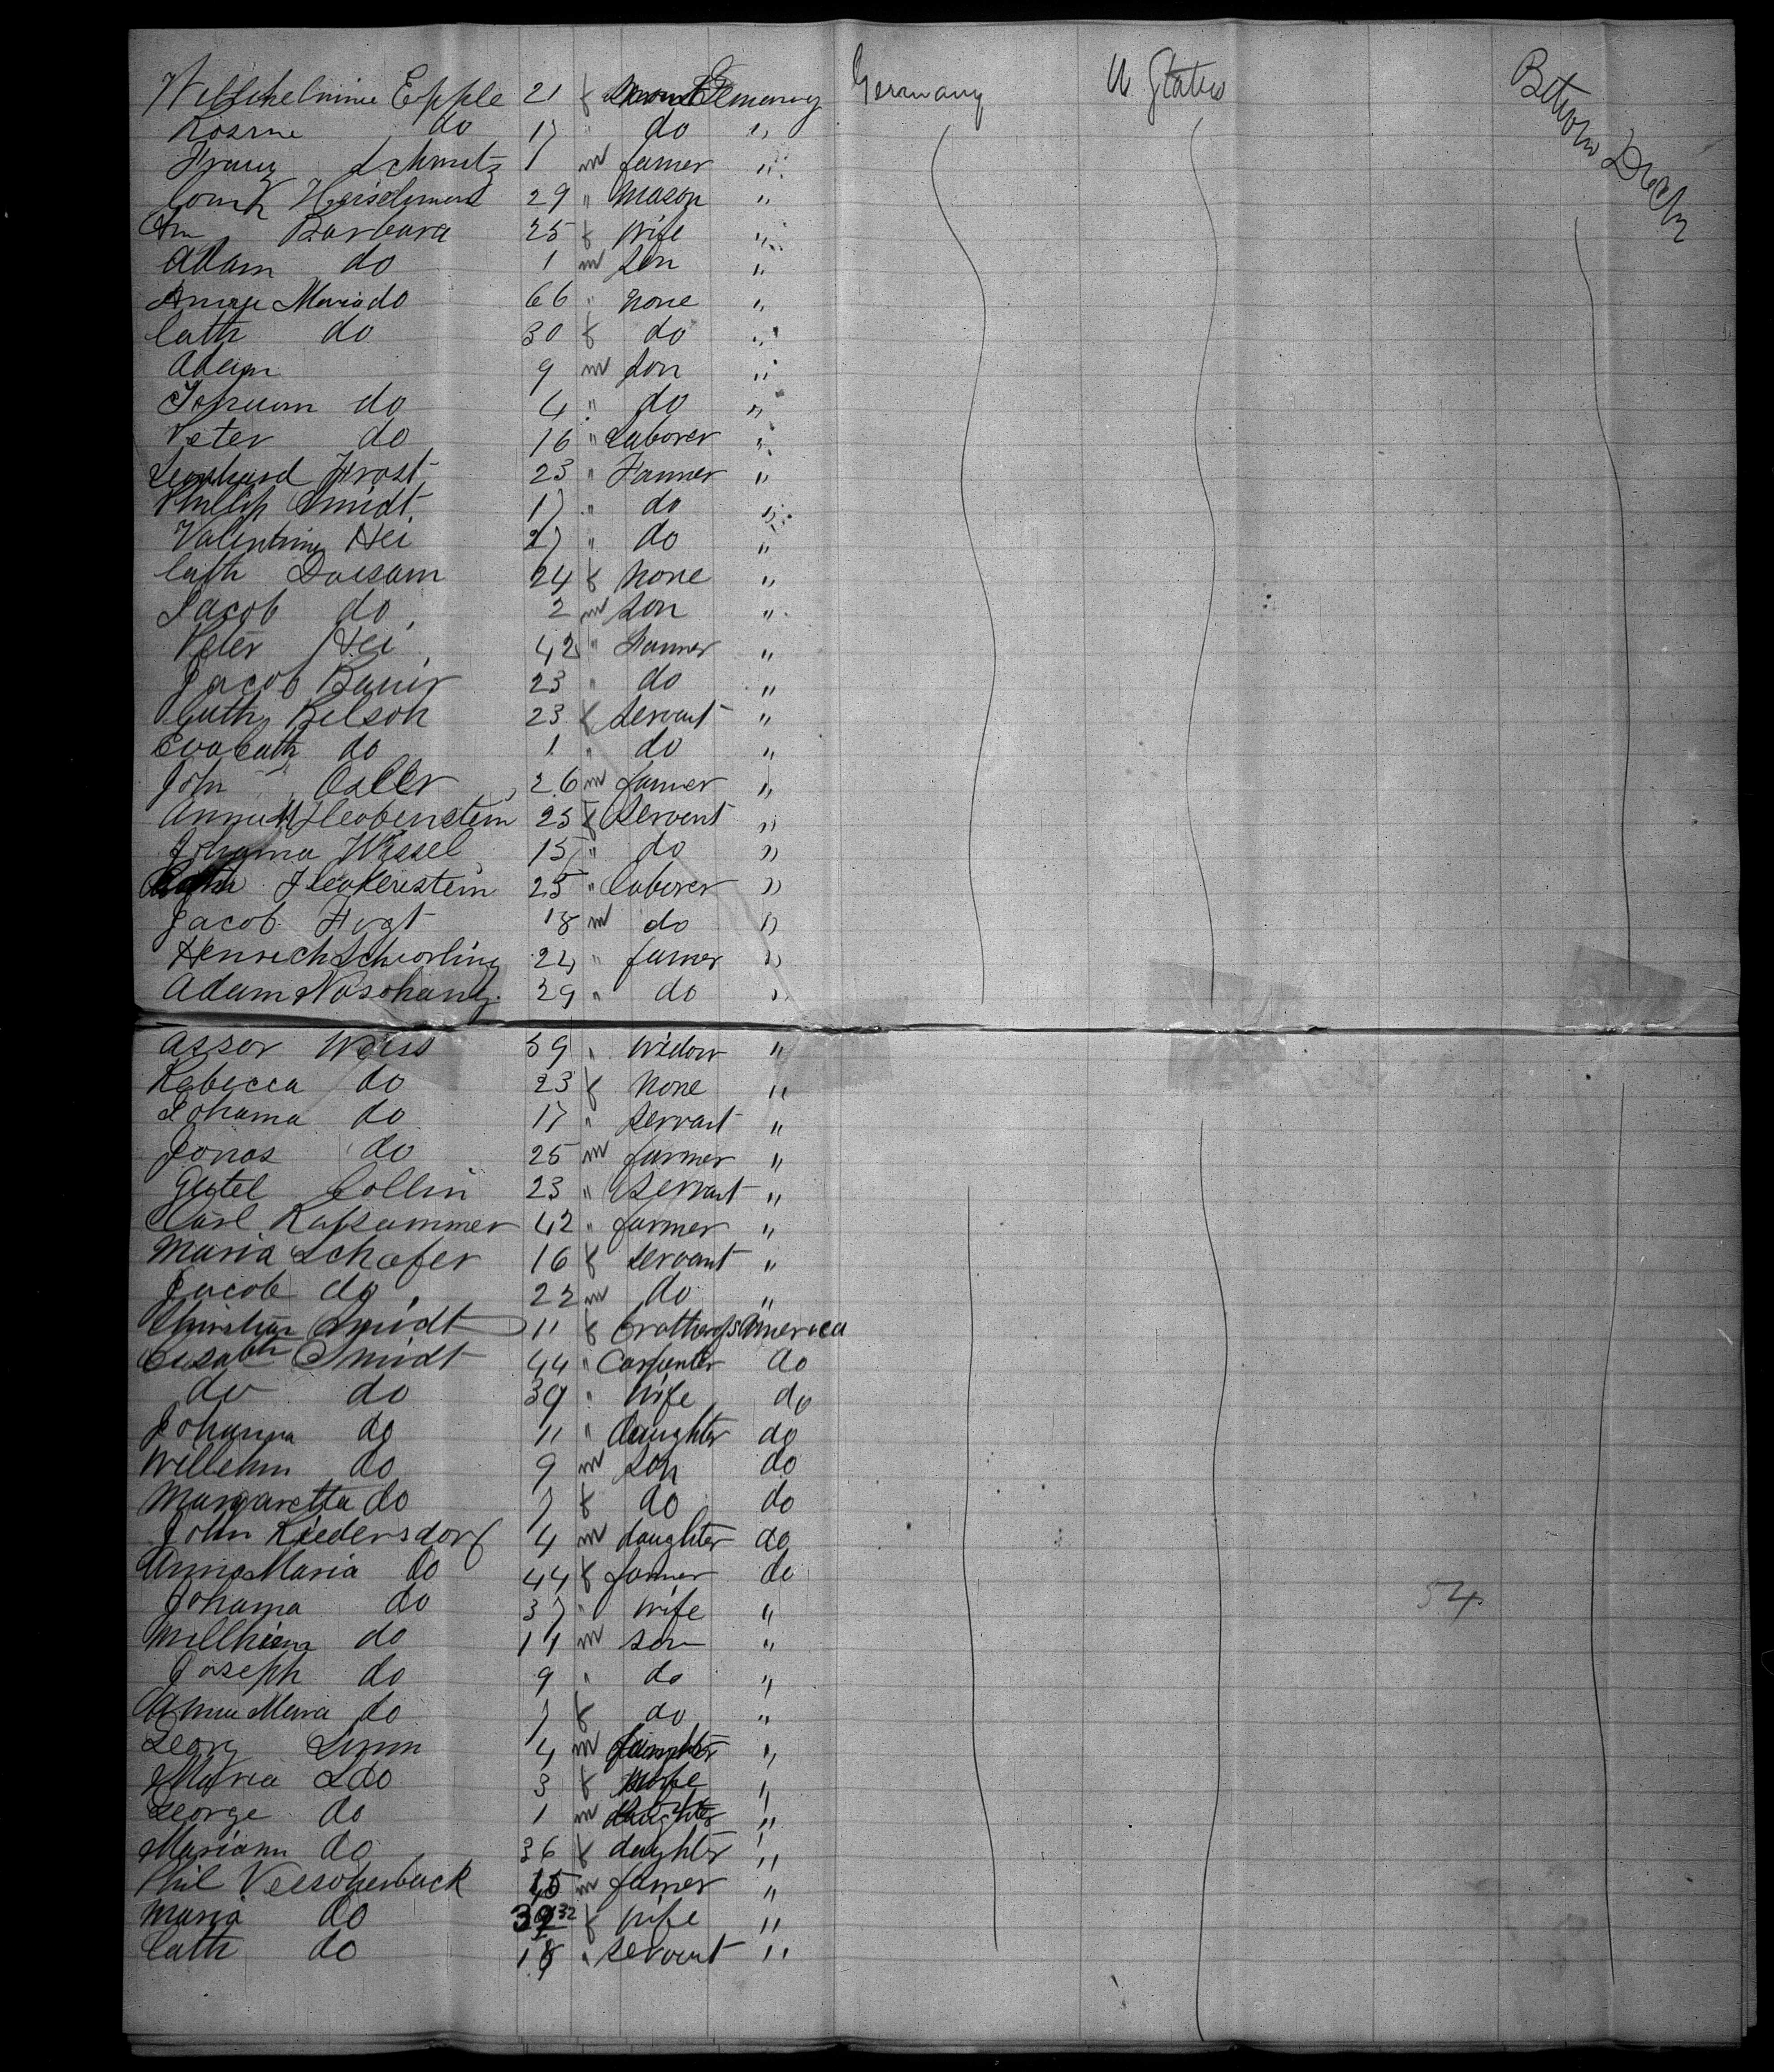 Willhelmine Epple 21 f servant Germany Germany U States Between Decks
Rosine do 17 " do "
Franz Schmutz 1 m farmer "
Conr Heiselmann 29 " mason "
An Barbara 25 f wife "
Adam do 1 m son "
Anna Maria do 66 " none "
Cath do 30 f do "
Adam 9 m son "
Johann do 4 " do "
Peter do 16 " Laborer "
Leonhard Frost 23 " Farmer "
Phillip Smidt 17 " do "
Valentine Hei 27 " do "
Cath Daesam 24 f none "
Jacob do 2 m son "
Peter Hei 42 " Farmer "
Jacob Bauer 23 " do "
Cath Belsoh 23 f servant "
Eva Cath do 1 " do "
John 26 m farmer "
Anna M Fleobenstein 25 f servent "
Johanna Wessel 15 " do "
Fleokenstein 25 " laborer "
Jacob Fogt 18 m do "
Henrich Schiorling 24 " farmer "
Adam Nasohang 29 " do "
Assor Weiss 59 " widow "
Rebecca do 23 f none "
Johanna do 17 " servant "
Jonas do 25 m farmer "
Gutel Collin 23 " servant "
Carl Kafsammer 42 " farmer "
Maria Schafer 16 f servant "
Jacob do 22 m do "
Christian Smidt 11 f brothers America
Elisabth Smidt 44 " Carpenter do
do do 39 " wife do
Johanna do 11 " daughter do
Willehm do 9 m son do
Margaretta do 7 f do do
John Riedersdorf 4 m daughter do
Anna Maria do 44 f farmer do
Johanna do 37 " wife "
Willhiem do 11 m son "
Joseph do 9 " do "
Anna Maria do 7 f do "
Georg Simm 4 m "
Maria S do 3 f "
George do 1 m daughter "
Mariann do 36 f daughter "
Phil Veesoherback 15 m farmer "
Maria do 32 f wife "
Cath do 18 " servant "
54